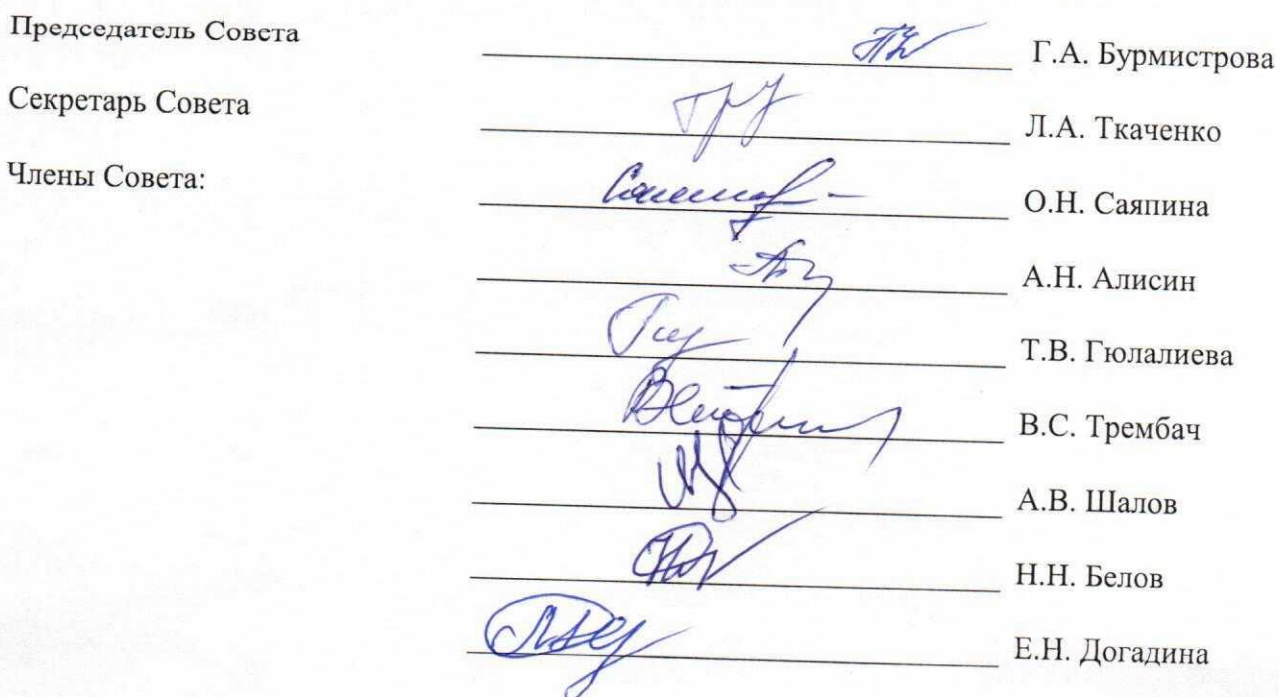 Председатель Совета Г.А. Бурмистрова
Секретарь Совета Л.А. Ткаченко
Члены Совета: О.Н. Саяпина
А.Н. Алисин
Т.В. Гюлалиева
В.С. Трембач
А.В. Шалов
Н.Н. Белов
Е.Н. Догадина